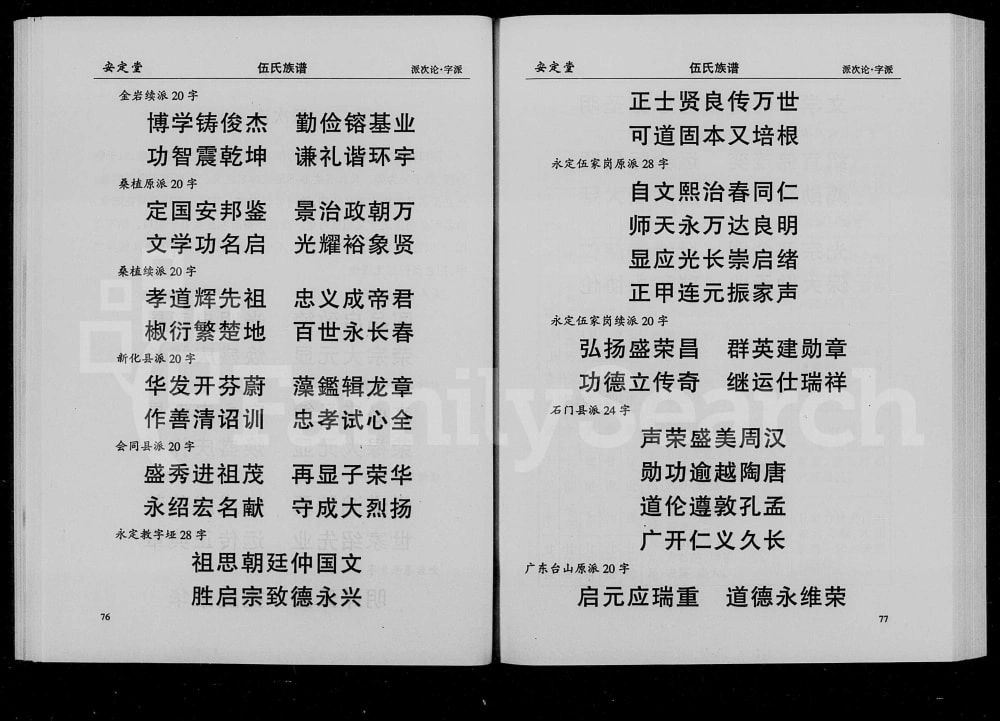 安定堂 伍氏族谱 派次论·字派
金岩续派 20 字
博学铸俊杰 勤俭镕基业
功智震乾坤 谦礼谐环宇
桑植原派 20 字
定国安邦鉴 景治政朝万
文学功名启 光耀裕象贤
桑植续派 20 字
孝道辉先祖 忠义成帝君
椒衍繁楚地 百世永长春
新化县派 20 字
华发开芬蔚 藻鑑辑龙章
作善清诏训 忠孝试心全
会同县派 20 字
盛秀进祖茂 再显子荣华
永绍宏名献 守成大烈扬
永定教字垭 28 字
祖思朝廷仲国文
胜启宗致德永兴
76
安定堂 伍氏族谱 派次论·字派
正士贤良传万世
可道固本又培根
永定伍家岗原派 28 字
自文熙治春同仁
师天永万达良明
显应光长崇启绪
正甲连元振家声
永定伍家岗续派 20 字
弘扬盛荣昌 群英建勋章
功德立传奇 继运仕瑞祥
石门县派 24 字
声荣盛美周汉
勋功逾越陶唐
道伦遵敦孔孟
广开仁义久长
广东台山原派 20 字
启元应瑞重 道德永维荣
77
FamilySearch